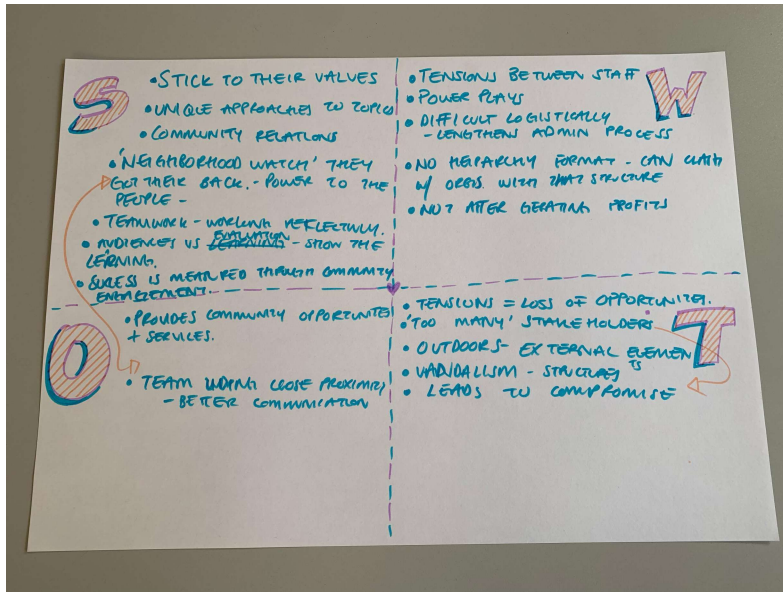 S
• STICK TO THEIR VALUES
• UNIQUE APPROACHES TO TOPICS
• COMMUNITY RELATIONS
• 'NEIGHBORHOOD WATCH' THEY
GOT THEIR BACK. - POWER TO THE
PEOPLE -
• TEAMWORK - WORKING REFLECTIVLY.
EVALUATION
• AUDIENCES VS LEARNING - SHOW THE
LERNING.
• SUCESS IS MEASURED THROUGH COMMUNITY
ENGAGEMENT.
W
• TENSIONS BETWEEN STAFF
• POWER PLAYS
• DIFFICULT LOGISTICALLY
- LENGTHENS ADMIN PROCESS
• NO HEIRARCHY FORMAT - CAN CLASH
W/ ORGS. WITH THAT STRUCTURE
• NOT AFTER GERATING PROFITS
O
• PROVIDES COMMUNITY OPPORTUNITIES
+ SERVICES.
• TEAM CLOSE PROXIMITY
- BETTER COMMUNICATION
T
• TENSIONS = LOSS OF OPPORTUNITIES.
• 'TOO MANY' STAKEHOLDERS
• OUTDOORS - EXTERNAL ELEMENTS
• VANDALISM - STRUCTURES
• LEADS TO COMPROMISE